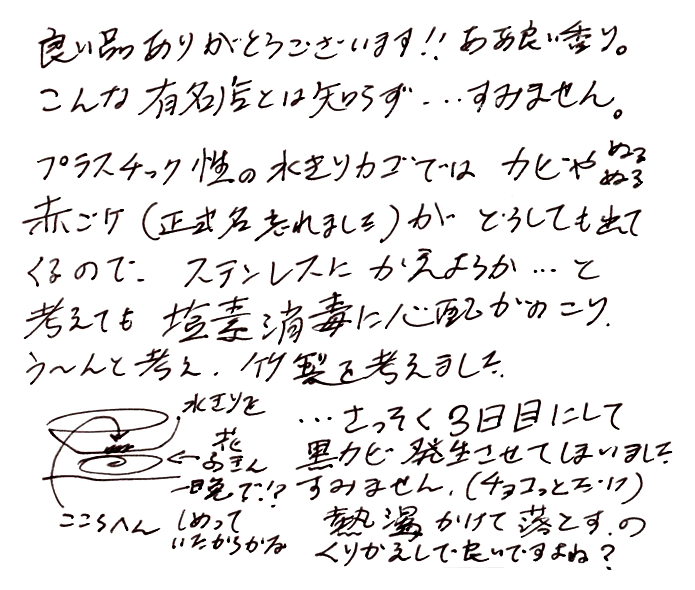 良い品ありがとうございます!! ああ良い香り。
こんな有名店とは知らず...すみません。
プラスチック性の水きりカゴでは カビや ぬるぬる
赤ゴケ(正式名忘れました)が どうしても出て
くるので、ステンレスに かえようか...と
考えても 塩素消毒に心配がのこり、
う〜んと考え、竹製を考えました。
水きりを
花ふきん
一晩で!?
ここらへん しめって
いたからかな
...さっそく3日目にして
黒カビ発生させてしまいました
すみません。(チョコっとだけ)
熱湯かけて落とす。の
くりかえしで良いですよね?